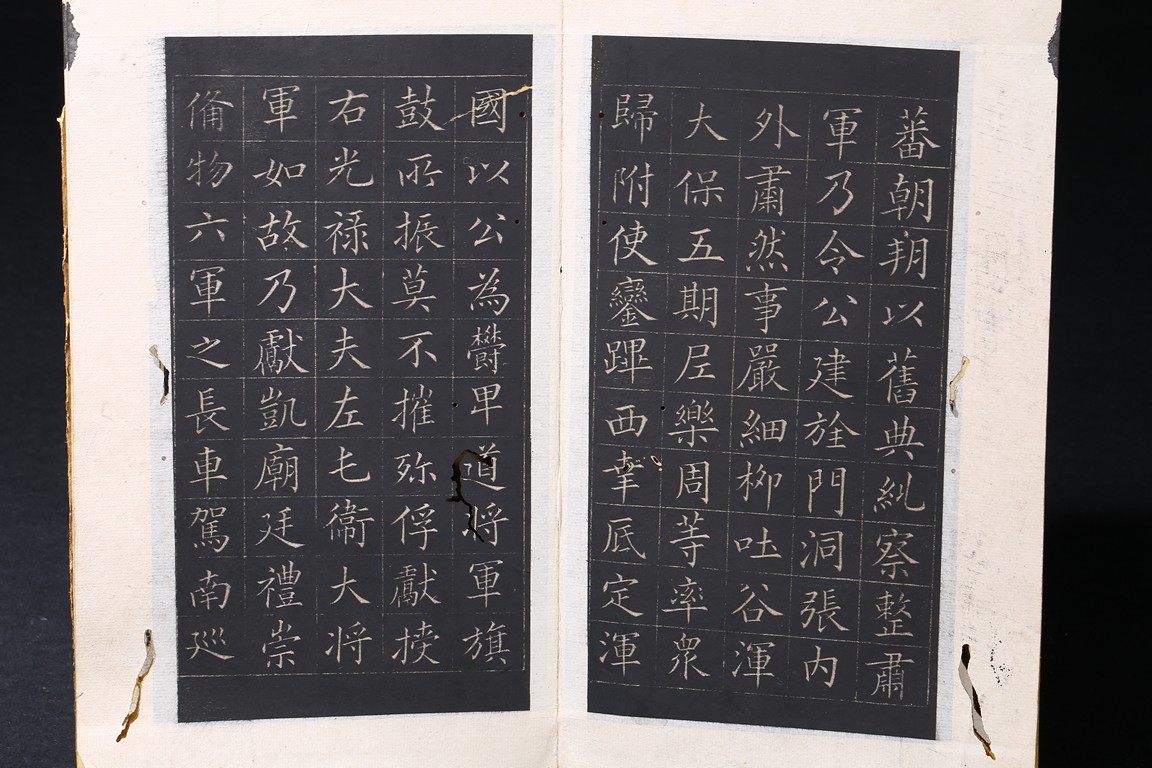 蕃朝翔以舊典糺察整肅
軍乃令公建旍門洞張內
外肅然事嚴細柳吐谷渾
大保五期尼樂周等率衆
歸附使鑾蹕西幸底定渾
國以公為欝卑道將軍旗
鼓所振莫不摧殄俘獻㨽
右光祿大夫左屯衞大將
軍如故乃獻凱廟廷禮崇
俻物六軍之長車駕南廵